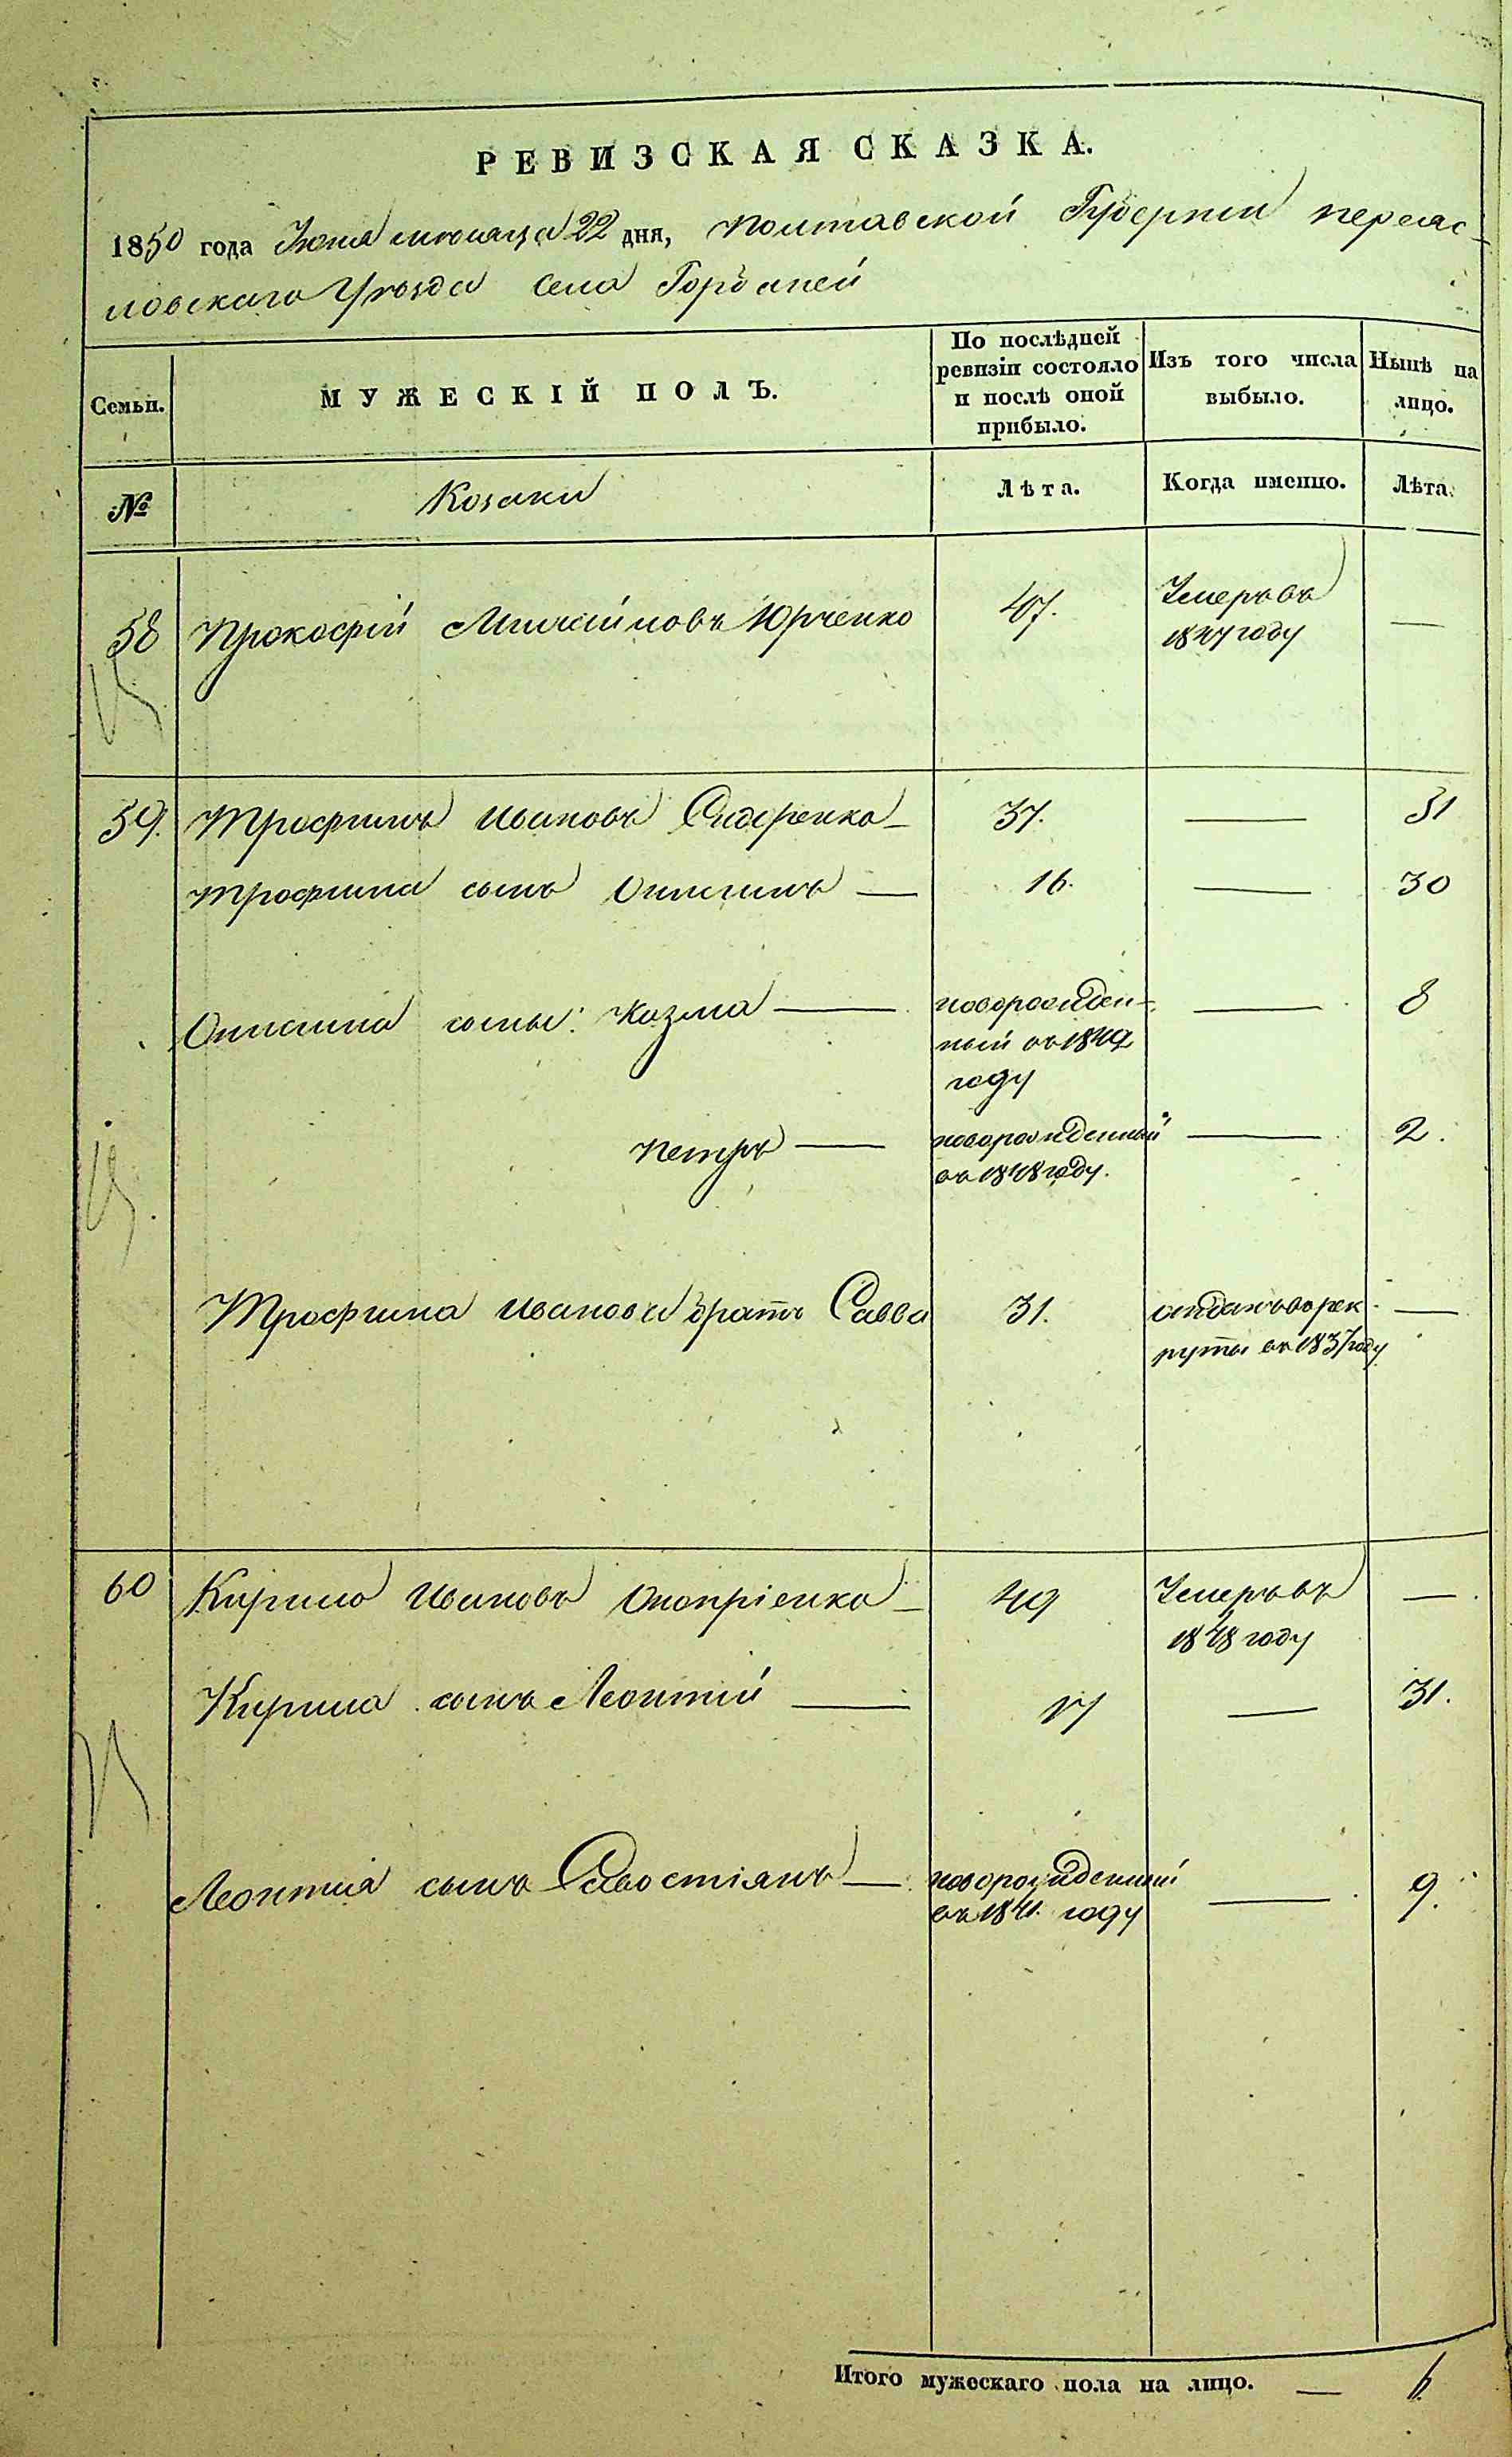 РЕВИЗСКАЯ СКАЗКА.
1850 года Июня месяца 22 дня, Полтавской Губернии переяс-
ловскаго Уѣзда Села Горбаней
Семьи.
МУЖЕСКІЙ ПОЛЪ.
По послѣдней ревизіи состояло и послѣ оной прибыло.
Изъ того числа выбыло.
Нынѣ на лицо.
№
Козаки
Лѣта.
Когда именно.
Лѣта.
58 Прокофій Юрченко 47. Умеръ въ —
1847 году
59. Трофимъ Ивановъ Сидоренко — 37. — 51
Трофима сынъ Онисимъ — 16. — 30
Онисима сыны: Козма — новорожден- — 8
ный въ 1842
году
Петръ — новорожденный — 2.
въ 1848 году.
Трофима Иванова братъ Савва 31. отданъ въ рек- —
руты въ 1837 году
60 Кирило Ивановъ Оноприенко — 49 Умеръ въ —
1848 году
Кирила сынъ Леонтий — 17 — 31.
Леонтия сынъ Савостіянъ — новорожденный — 9.
въ 1841. году
Итого мужескаго пола на лицо. — 6